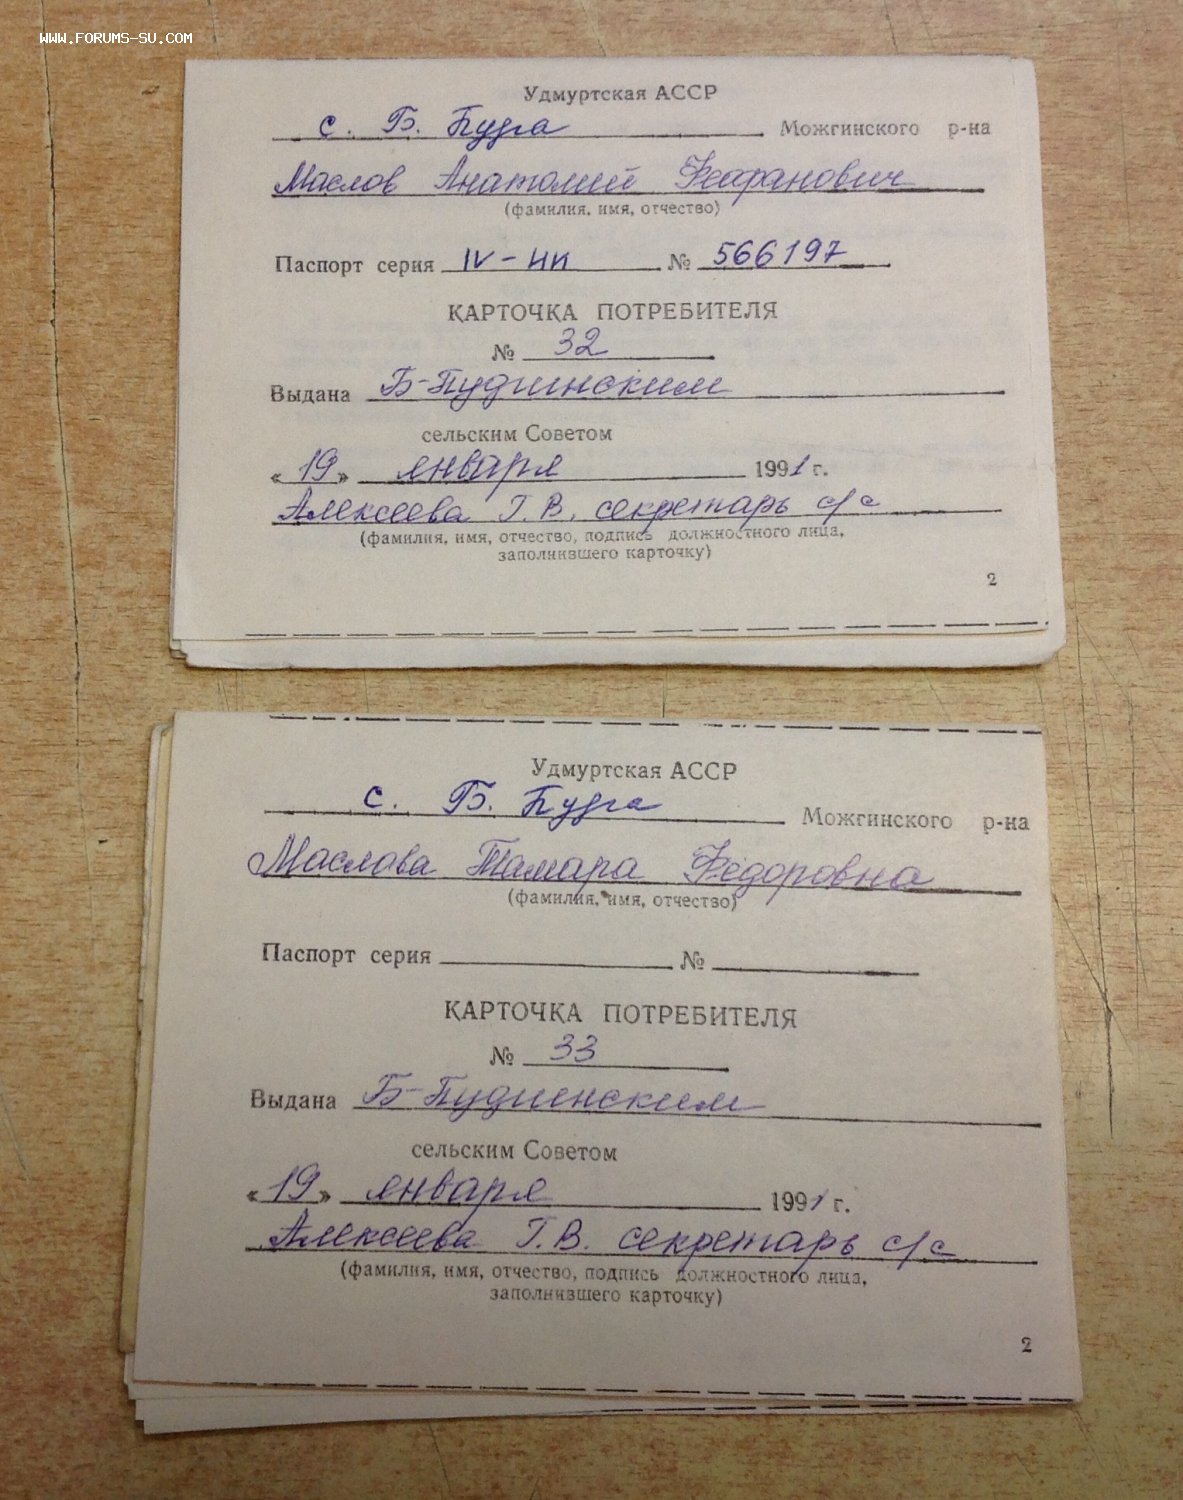 WWW.FORUMS-SU.COM
Удмуртская АССР
с. Б. Пудга Можгинского р-на
Маслов Анатолий Феофанович
(фамилия, имя, отчество)
Паспорт серия IV-НИ № 566197
КАРТОЧКА ПОТРЕБИТЕЛЯ
№ 32
Выдана Б-Пудгинским
сельским Советом
«19» января 1991 г.
Алексеева Г.В. секретарь с/с
(фамилия, имя, отчество, подпись должностного лица,
заполнившего карточку)
2
Удмуртская АССР
с. Б. Пудга Можгинского р-на
Маслова Тамара Федоровна
(фамилия, имя, отчество)
Паспорт серия №
КАРТОЧКА ПОТРЕБИТЕЛЯ
№ 33
Выдана Б-Пудгинским
сельским Советом
«19» января 1991 г.
Алексеева Г.В. секретарь с/с
(фамилия, имя, отчество, подпись должностного лица,
заполнившего карточку)
2